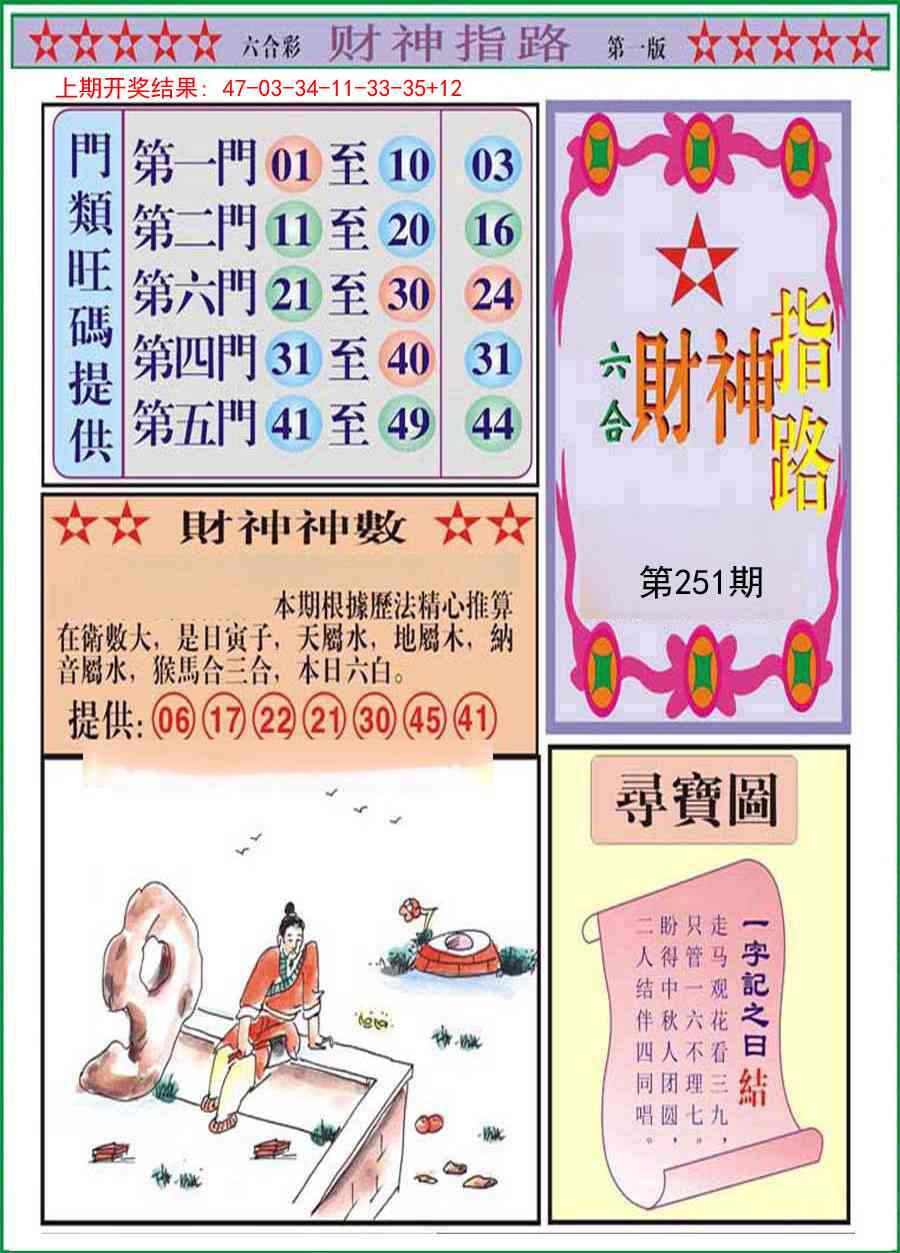 六合彩 财神指路 第一版
上期开奖结果：47-03-34-11-33-35+12
門類旺碼提供
第一門 01 至 10 03
第二門 11 至 20 16
第六門 21 至 30 24
第四門 31 至 40 31
第五門 41 至 49 44
六合
財神
指路
第251期
財神神數
本期根據歷法精心推算
在術數大，是日寅子，天屬水，地屬木，納
音屬水，猴馬合三合，本日六白。
提供: 06 17 22 21 30 45 41
尋寶圖
一字記之日結
走马观花看三九，
只管一六不理七。
盼得中秋人团圆，
二人结伴四同唱。